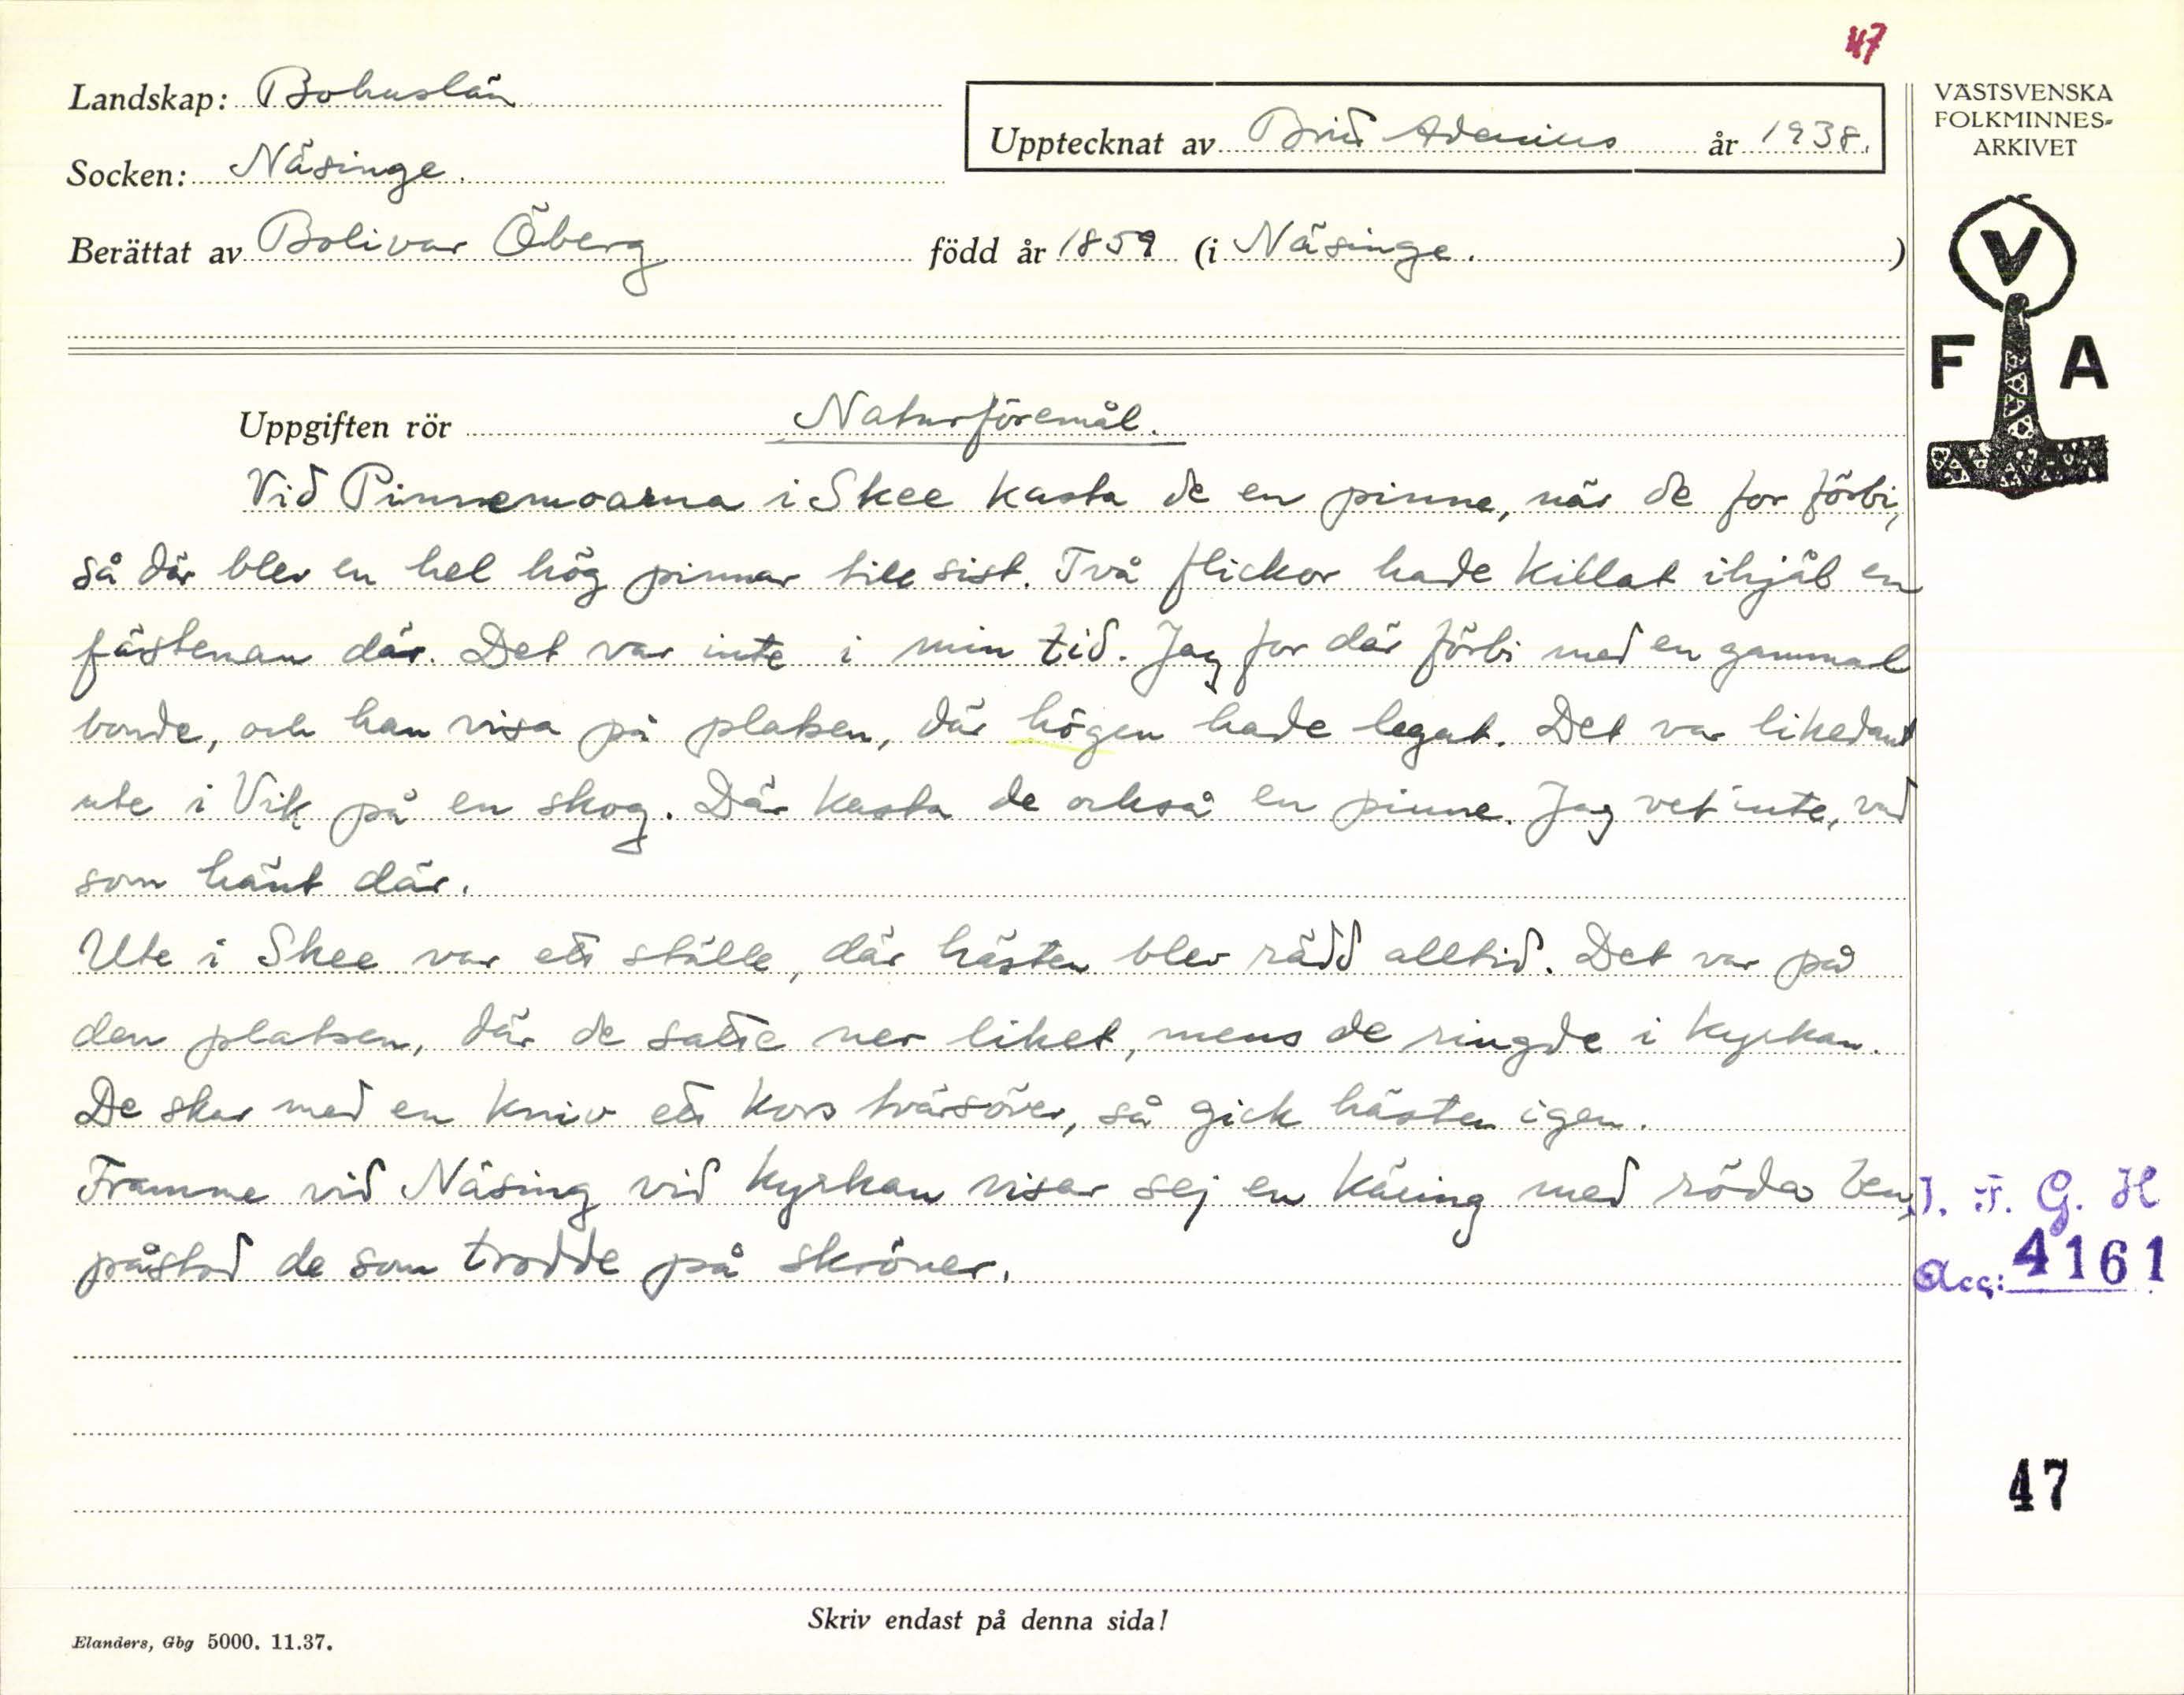 47
Landskap: Bohuslän
Upptecknat av Brit Adenius år 1938.
Socken: Näsinge.
Berättat av Bolivar Öberg född år 1859 (i Näsinge.)
VÄSTSVENSKA
FOLKMINNES-
ARKIVET
V
F A
Uppgiften rör Naturföremål.
Vid Pinnemoarna i Skee kasta de en pinne, när de for förbi,
så där blev en hel hög pinnar till sist. Två flickor hade killat ihjäl en
fästeman där. Det var inte i min tid. Jag for där förbi med en gammal
bonde, och han visa på platsen, där högen hade legat. Det var likedant
ute i Vik på en skog. Där kasta de också en pinne. Jag vet inte, vad
som hänt där.
Ute i Skee var ett ställe, där hästen blev rädd alltid. Det var på
den platsen, där de satte ner liket, mens de ringde i kyrkan.
De skar med en kniv ett kors tvärsöver, så gick hästen igen.
Framme vid Näsing vid kyrkan visar sej en käring med röda ben,
påstod de som trodde på skröner.
I. F. G. H
Acc: 4161
47
Skriv endast på denna sida!
Elanders, Gbg 5000. 11.37.